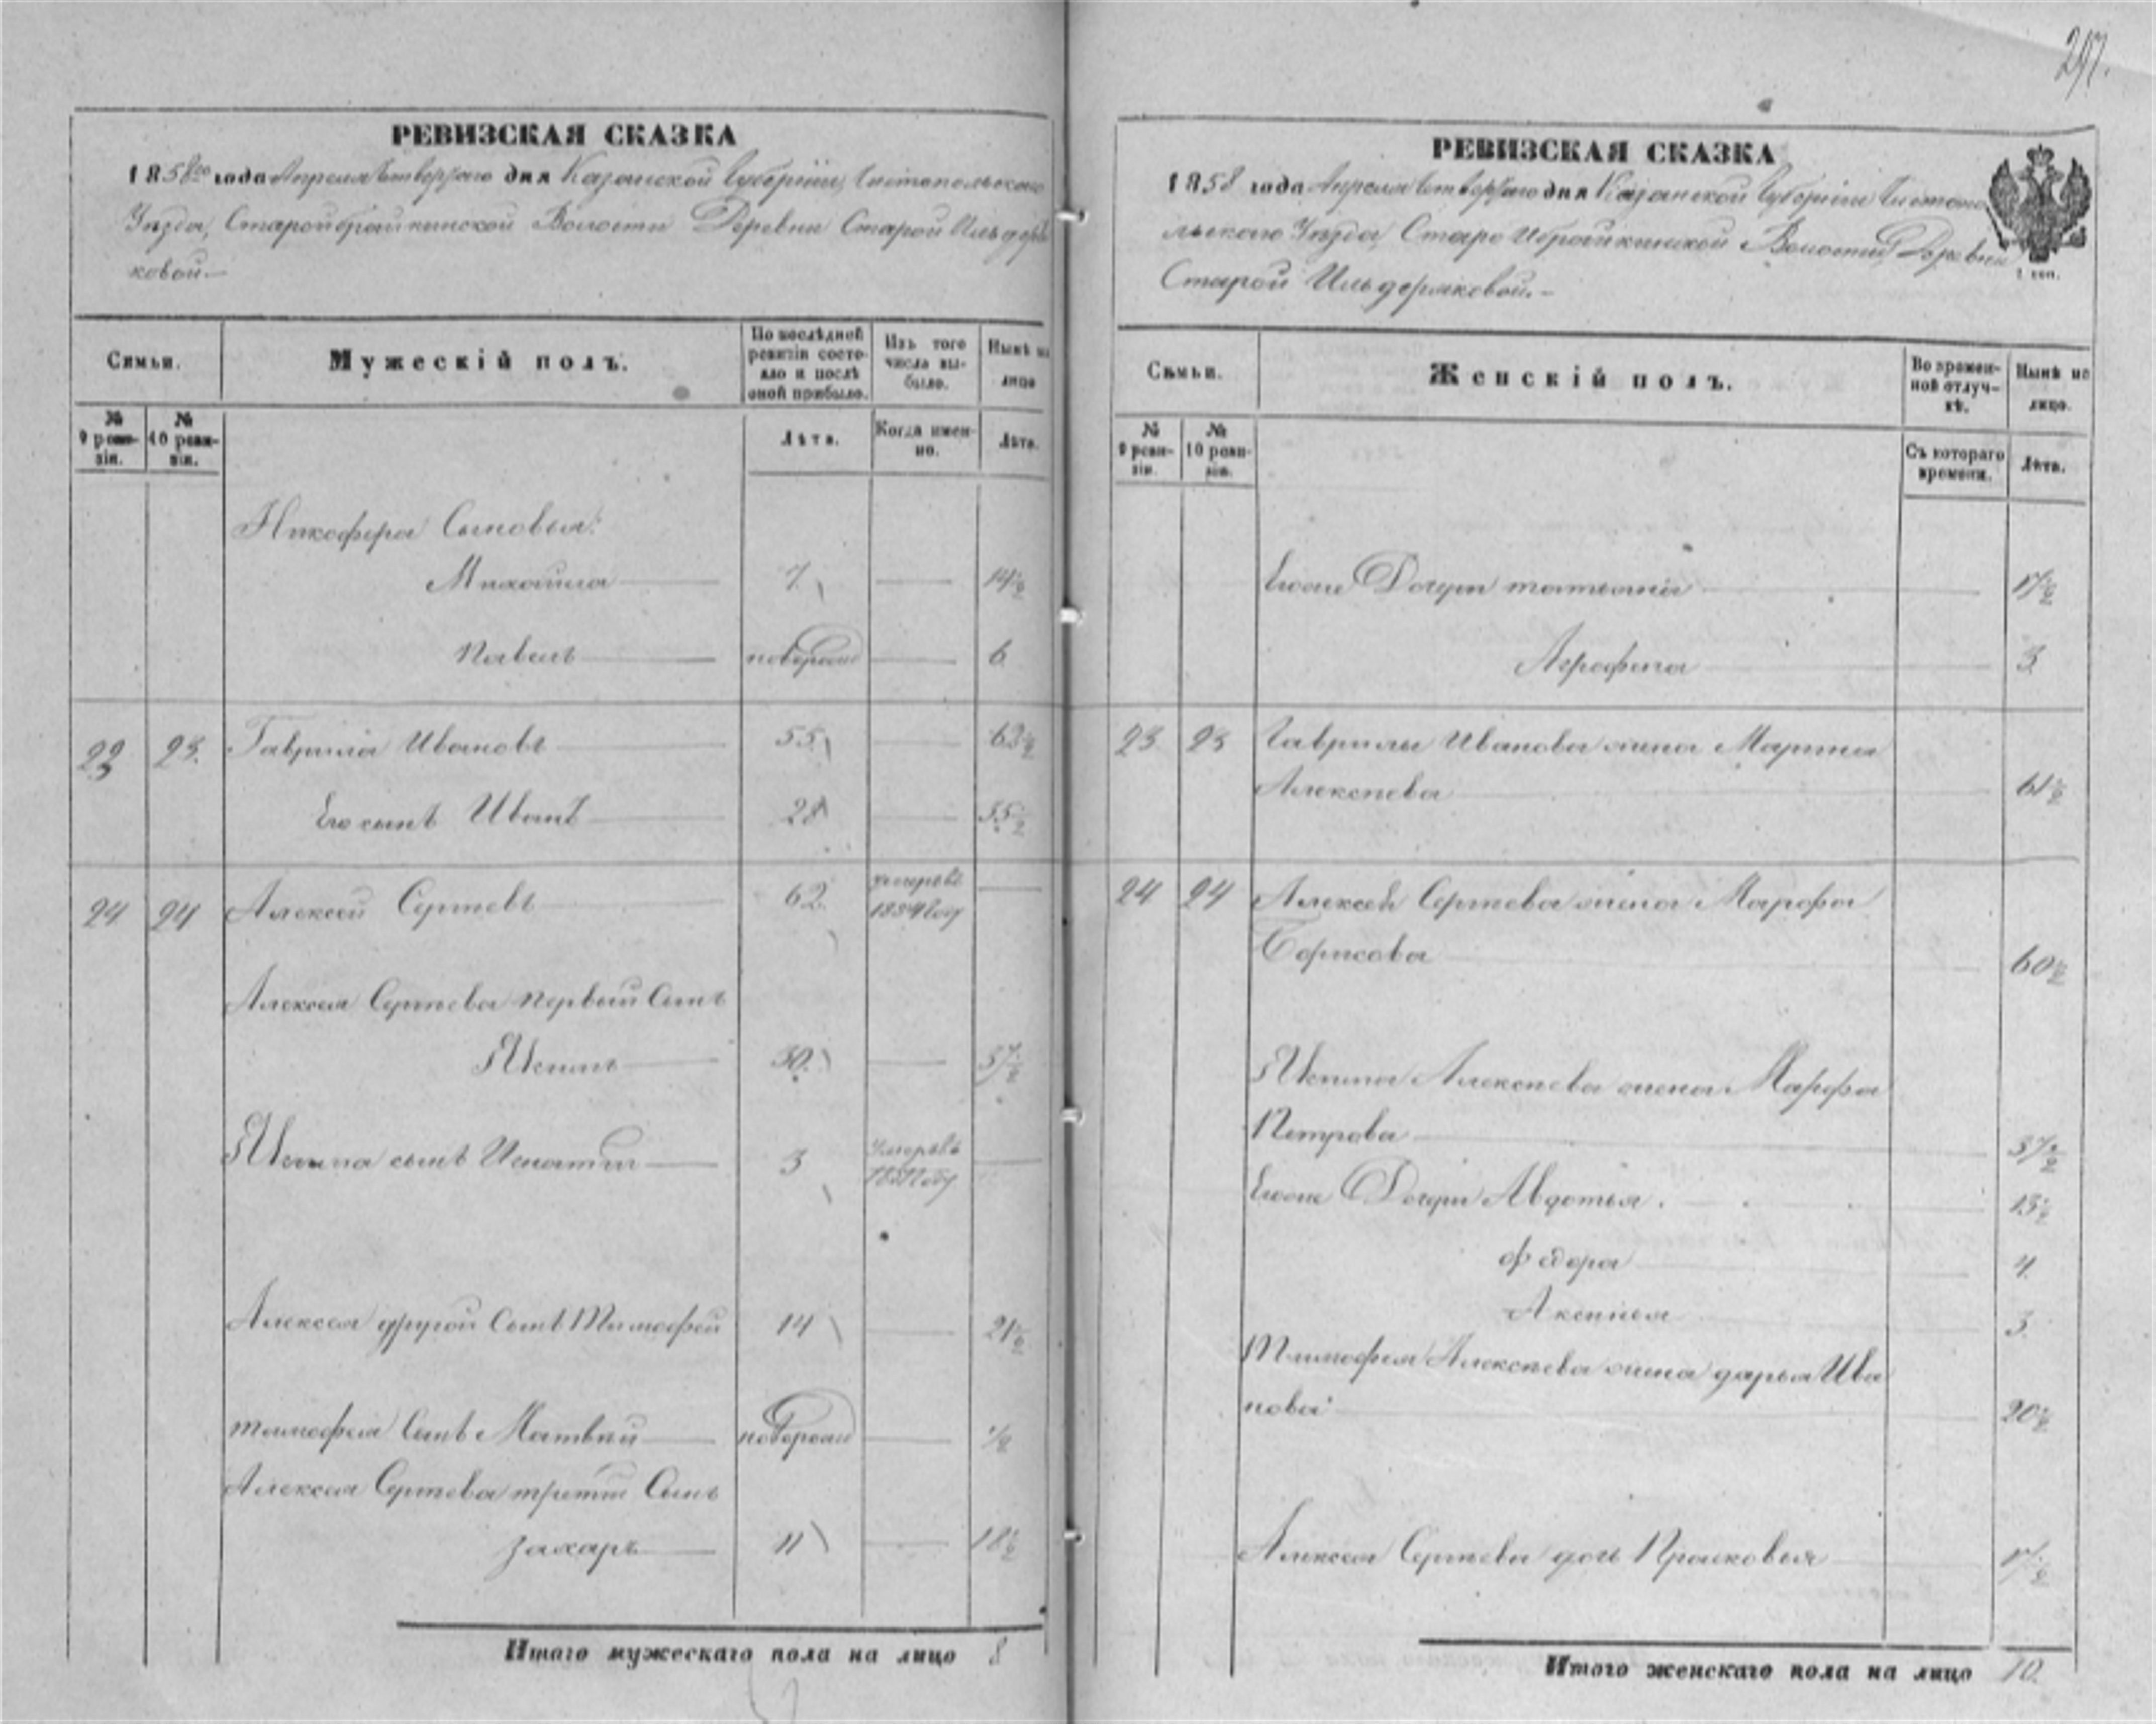 297.
РЕВИЗСКАЯ СКАЗКА
1858го года Апреля Четвертаго дня Казанской Губернии, Чистопольскаго
Уезда, Староибрайкинской Волости Деревни Старой Ильдеря
ковой.—
Симьи.
Мужескій полъ.
По послѣдней ревизіи состо- яло и послѣ оной прибыло.
Изъ того числа вы- было.
Нынѣ на лицо
№ 9 реви- зіи.
№ 10 реви- зіи.
Лѣта.
Когда имен- но.
Лѣта.
Никофера Сыновья:
Михайла 7 14½
Павелъ новорож 6
23 23. Гаврила Ивановъ 55 62½
Его сынъ Иванъ 28 35½
24 24 Алексей Сергеевъ 62 умеръ въ 1854 году
Алексея Сергеева первый Сынъ
30 37½
сынъ Игнатий 3 умеръ въ году
Алексея другой Сынъ Тимофей 14 21½
тимофея Сынъ Матвей новорож ½
Алексея Сергеева третий Сынъ
захаръ 11 18½
Итого мужескаго пола на лицо 8
РЕВИЗСКАЯ СКАЗКА
1858 года Апреля Четвертаго дня Казанской Губернии Чистопо
льскаго Уезда, Старо Ибрайкинской Волости, Деревни
Старой Ильдеряковой.—
Симьи.
Женскій полъ.
Во времен- ной отлуч- кѣ.
Нынѣ на лицо.
№ 9 реви- зіи.
№ 10 реви- зіи.
Съ котораго времени.
Лѣта.
Егоже Дочери татьяна 17½
Агрофена 3
23 23 Гаврилы Иванова жена Марина
Алексеева 61½
24 24 Алексей Сергеева жена Марфа
Борисова 60½
Алексеева жена Марфа
Петрова 37½
Егоже Дочери Авдотья. 13½
федора 4
Аксинья 3
Тимофея Алексеева жена дарья Ива
нова 20½
Алексея Сергеева дочь Прасковья 17½
Итого женскаго пола на лицо 10.